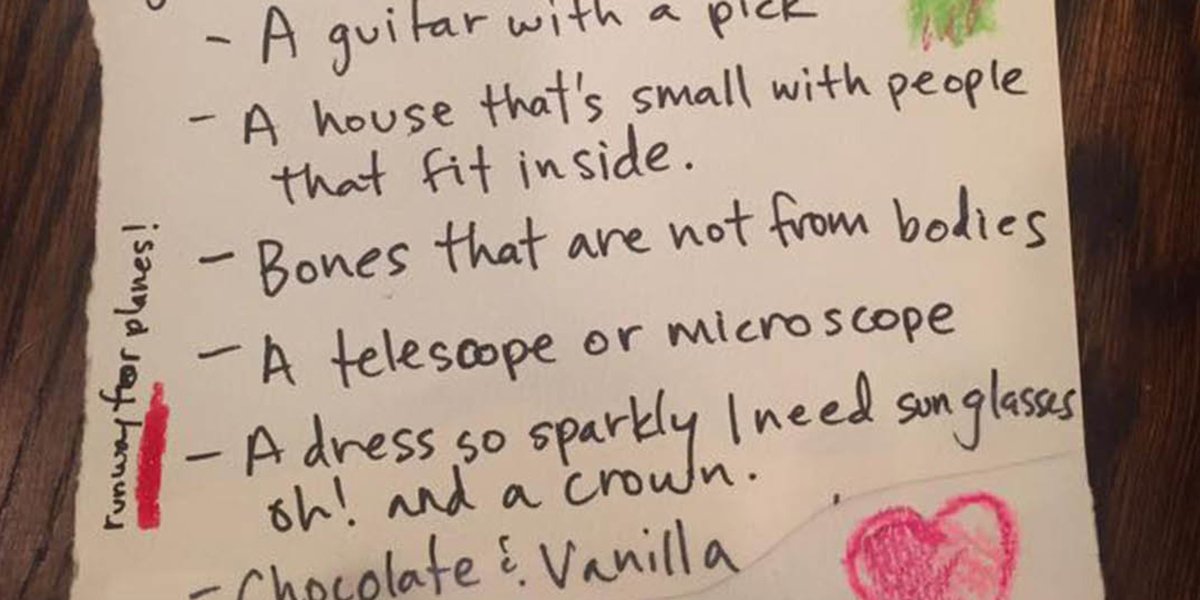 - A guitar with a pick
- A house that's small with people
that fit inside.
- Bones that are not from bodies
- A telescope or microscope
- A dress so sparkly I need sunglasses
oh! and a crown.
- Chocolate & Vanilla
runway for planes!